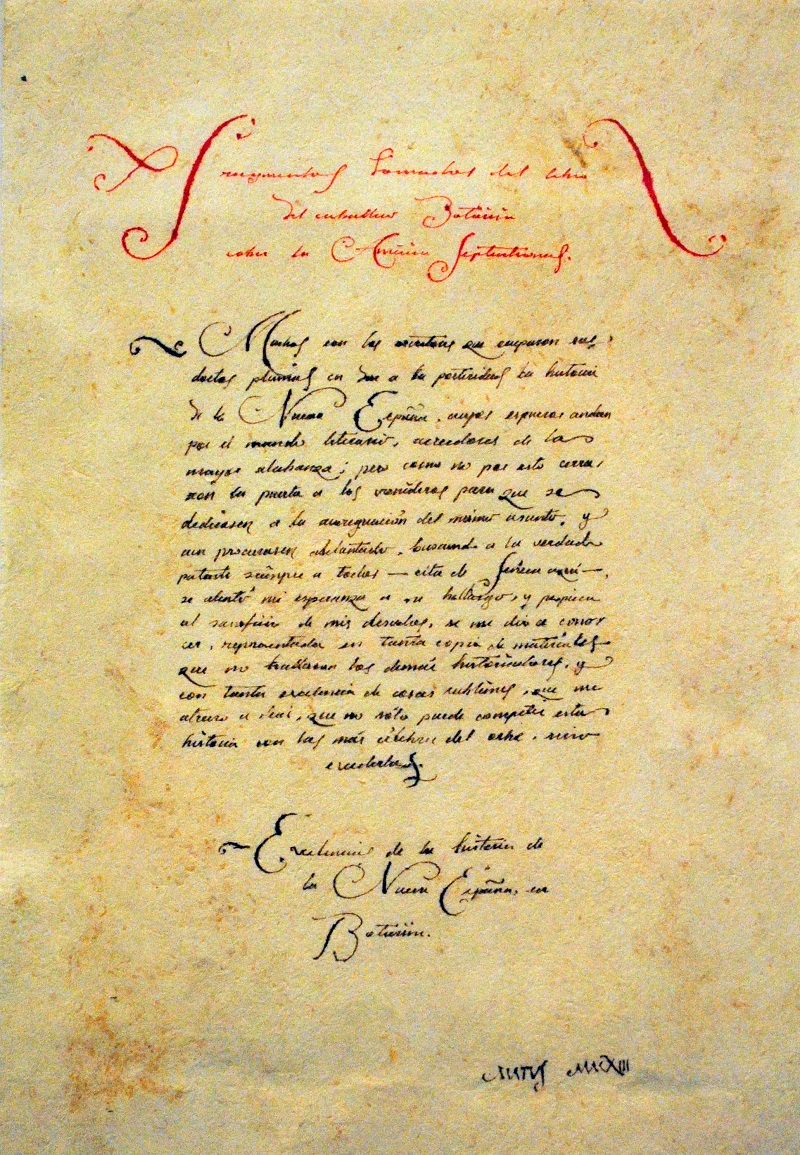 Fragmentos tomados del libro
del caballero Boturini
sobre la América Septentrional.
Muchos son los escritores que emplearon sus
doctas plumas en dar a la posteridad la historia
de la Nueva España, cuyos esfuerzos andan
por el mundo literario, acreedores de la
mayor alabanza; pero como no por esto cerra
ron la puerta a los venideros para que se
dedicasen a la averiguación del mismo asunto, y
aun procurasen adelantarlo, buscando a la verdad
patente siempre a todos — cita de Séneca aquí —,
se alentó mi esperanza a su hallazgo, y
al de mis desvelos, se me dio a cono
cer, representada en tanta copia de materiales
que no hallaron los demás historiadores, y
con tanta excelencia de cosas sublimes, que me
atrevo a decir, que no sólo puede competir esta
historia con las más célebres del orbe, sino
excederlas.
Excelencia de la historia de
la Nueva España, en
Boturini.